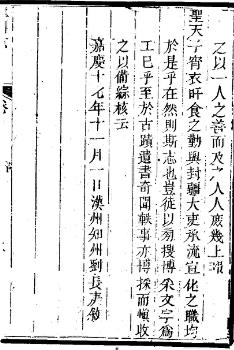 之以一人之善而及之人人庶幾上報
聖天子宵衣旰食之勤與封疆大吏承流宣化之職均
於是乎在然則斯志也豈徒以旁搜博采文字為
工已乎至於古蹟遺書奇聞軼事亦博採而輯收
之以備綜核云
嘉慶十七年十一月一日漢州知州劉長庚敘